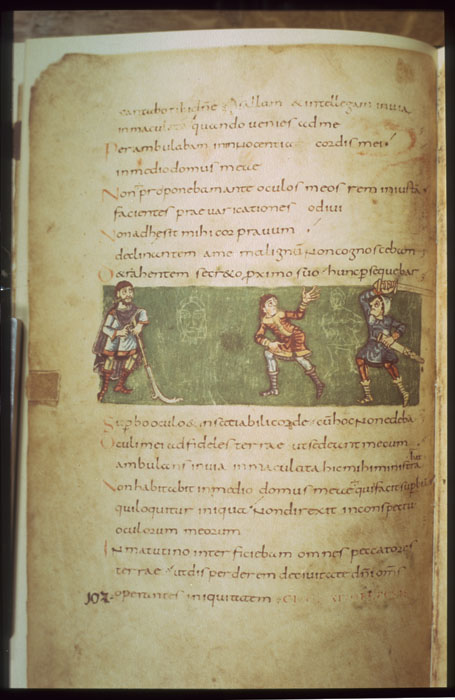 cantabo tibi dne Psallam & intellegam in uia
inmaculata quando uenies ad me
Perambulabam in innocentia cordis mei
in medio domus meae
Non proponebam ante oculos meos rem iniusta
facientes praeuaricationes odiui
Non adhesit mihi cor prauum
declinantem a me malignu Non cognoscebam
D&rahentem secr&o proximo suo hunc persequebar
Superbo oculo & insatiabili corde cu hoc Non edeba
Oculi mei ad fideles terrae ut sedeant mecum
ambulans in uia inmaculata hic mihi ministra
bat
Non habitabit in medio domus meae qui facit superbia
qui loquitur iniqua Non direxit in conspectu
oculorum meorum
IN matutino interficiebam omnes peccatores
terrae ut disperderem de ciuitate dni oms
102 operantes iniquitatem